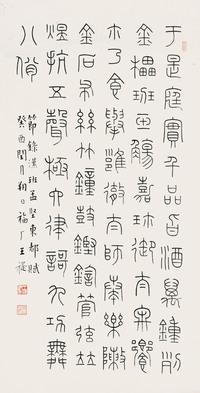 于是庭實千品旨酒萬鍾列
金罍班玉觴嘉珍御太牢饗
尒乃食舉雝徹太師奏樂陳
金石布絲竹鐘鼓鏗鍧管弦
煜抗五聲極六律謌九功舞
八佾
節錄漢班孟堅東都賦
癸酉閏月朔日福厂王禔